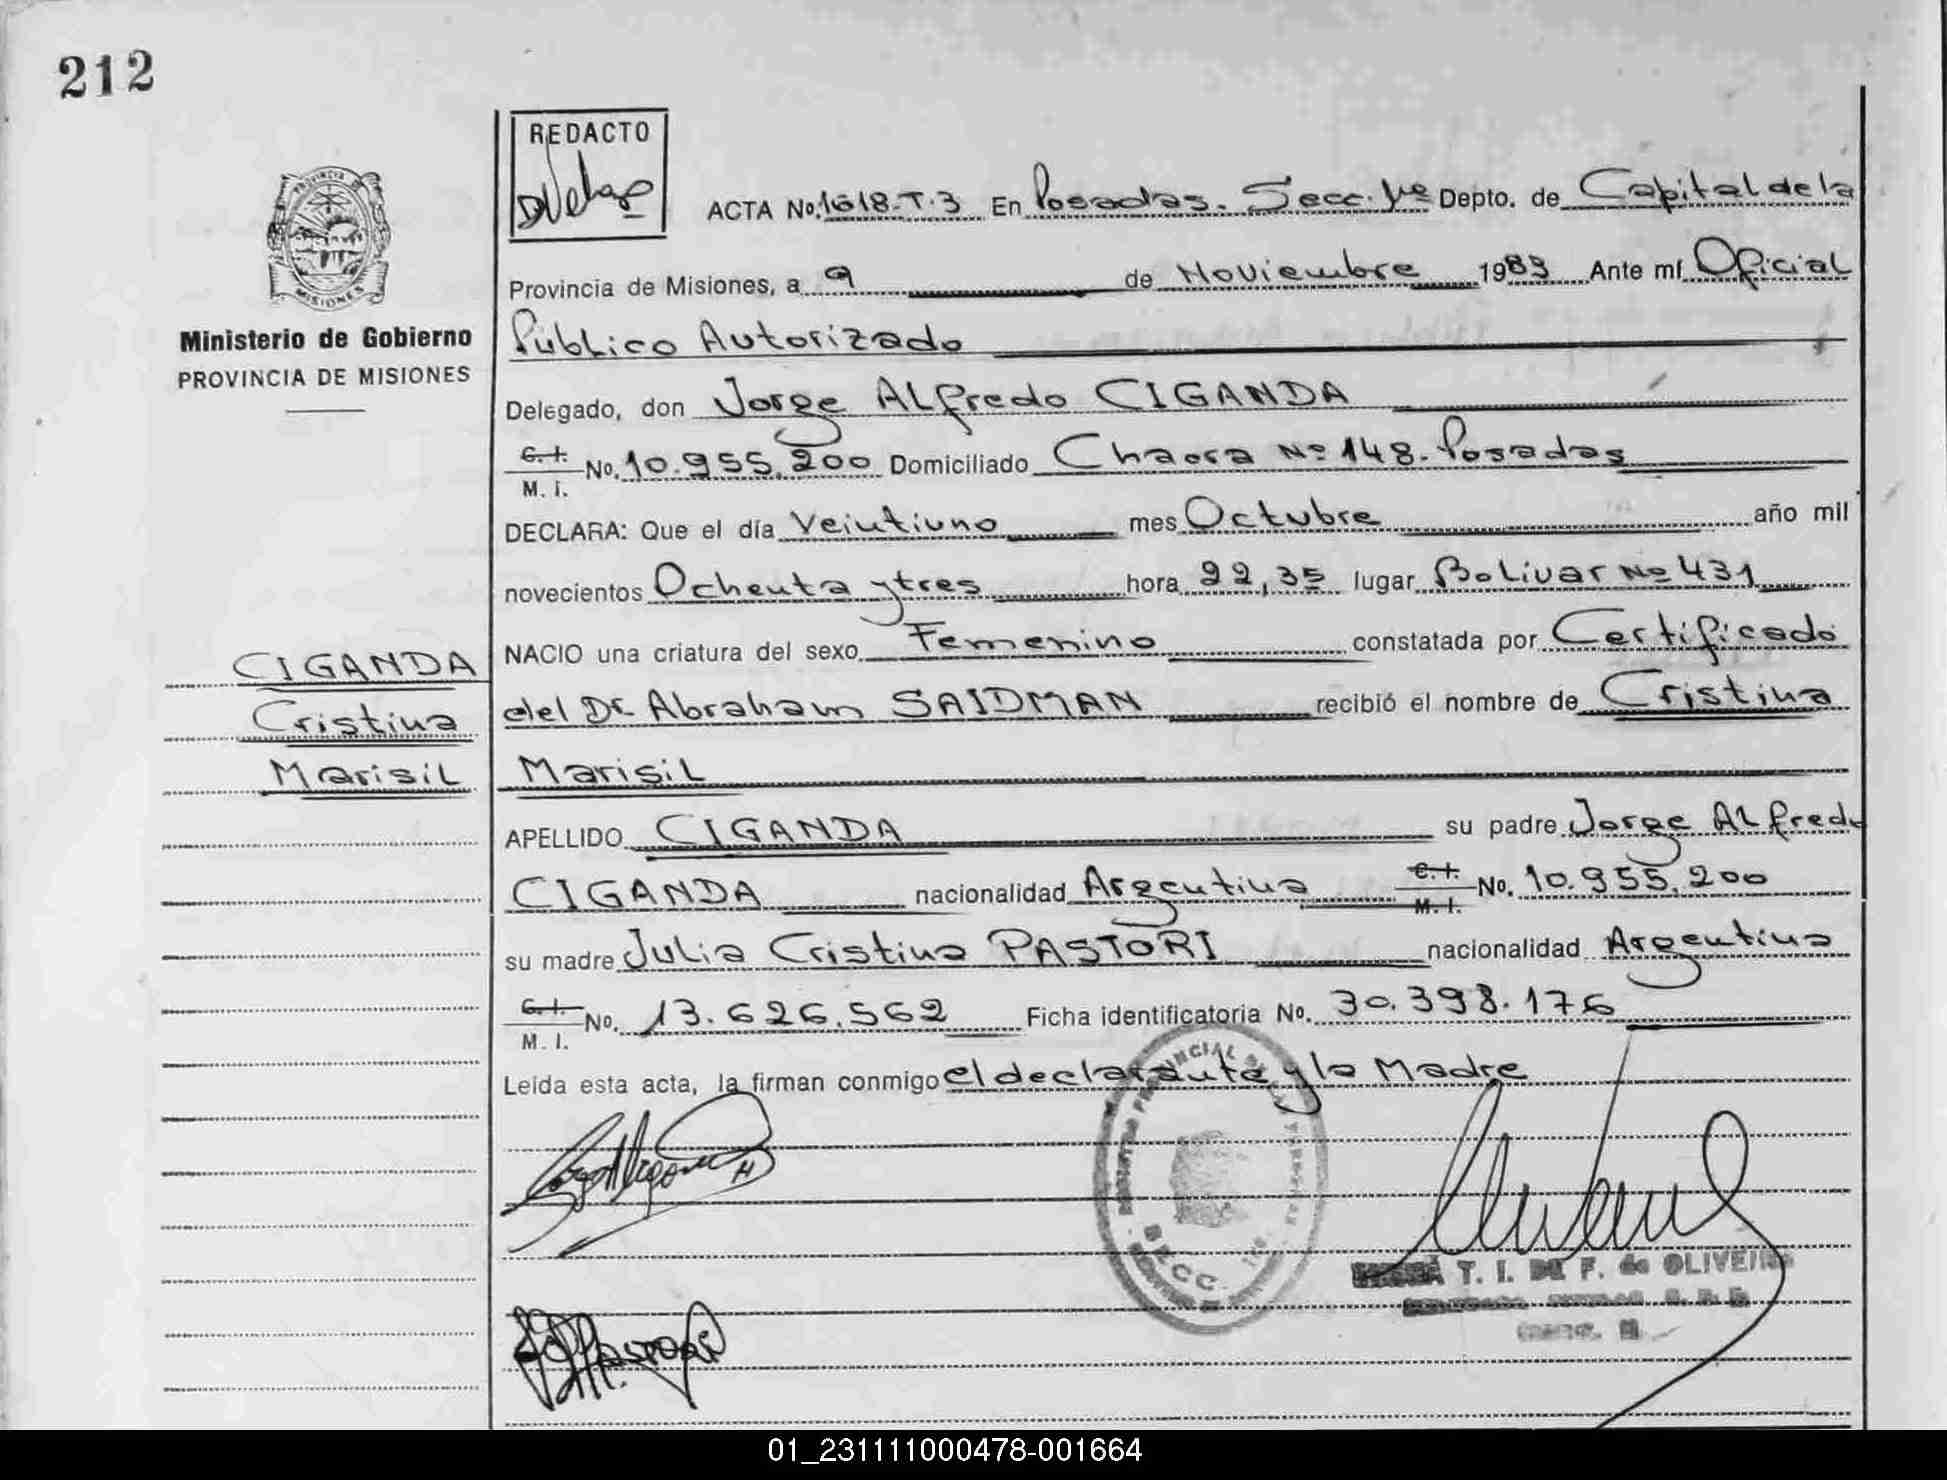 212
REDACTO
PROVINCIA DE
MISIONES
Ministerio de Gobierno
PROVINCIA DE MISIONES
ACTA No. 1618-T.3 En Posadas. Secc. 1ra Depto. de Capital de la
Provincia de Misiones, a 9 de Noviembre 1983 Ante mí Oficial
Público Autorizado
Delegado, don Jorge Alfredo CIGANDA
C.I. M.I. No. 10.955.200 Domiciliado Nº 148. Posadas
DECLARA: Que el día Veintiuno mes Octubre año mil
novecientos Ochenta y tres hora 22,35 lugar Bolivar Nº 431
NACIO una criatura del sexo Femenino constatada por Certificado
del Dr. Abraham SAIDMAN recibió el nombre de Cristina
Marisil
APELLIDO CIGANDA su padre Jorge Alfredo
CIGANDA nacionalidad Argentina C.I. M.I. No. 10.955.200
su madre Julia Cristina PASTORI nacionalidad Argentina
C.I. M.I. No. 13.626.562 Ficha identificatoria No. 30.398.176
Leída esta acta, la firman conmigo el declarante y la Madre
CIGANDA
Cristina
Marisil
SECC.
T. I. DE F. de OLIVEIRA
01_231111000478-001664